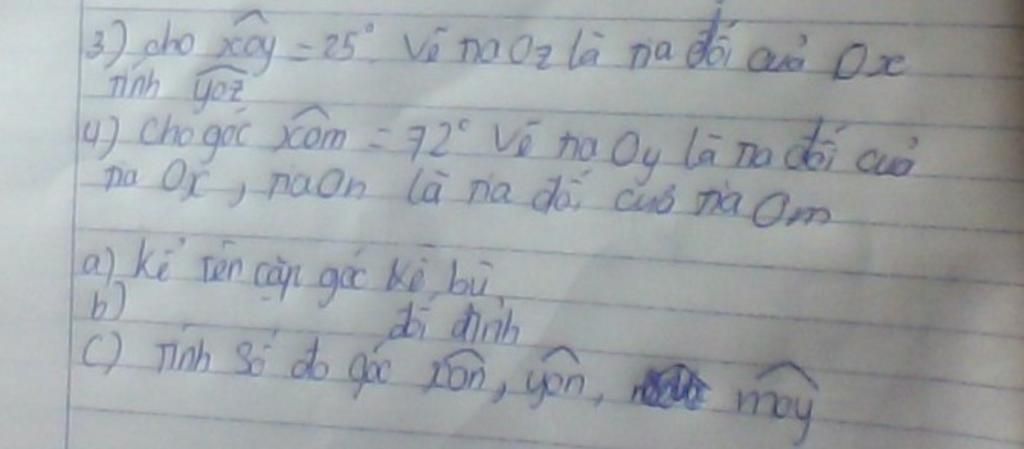 3) cho xoy = 25° Vẽ tia Oz là tia đối của Ox
tính yoz
4) Cho góc xOm = 72° Vẽ tia Oy là tia đối của
tia Ox, tia On là tia đối của tia Om
a) Kể tên cặp góc kề bù
b) đối đỉnh
c) Tính số đo góc xOn, yOn, mOy